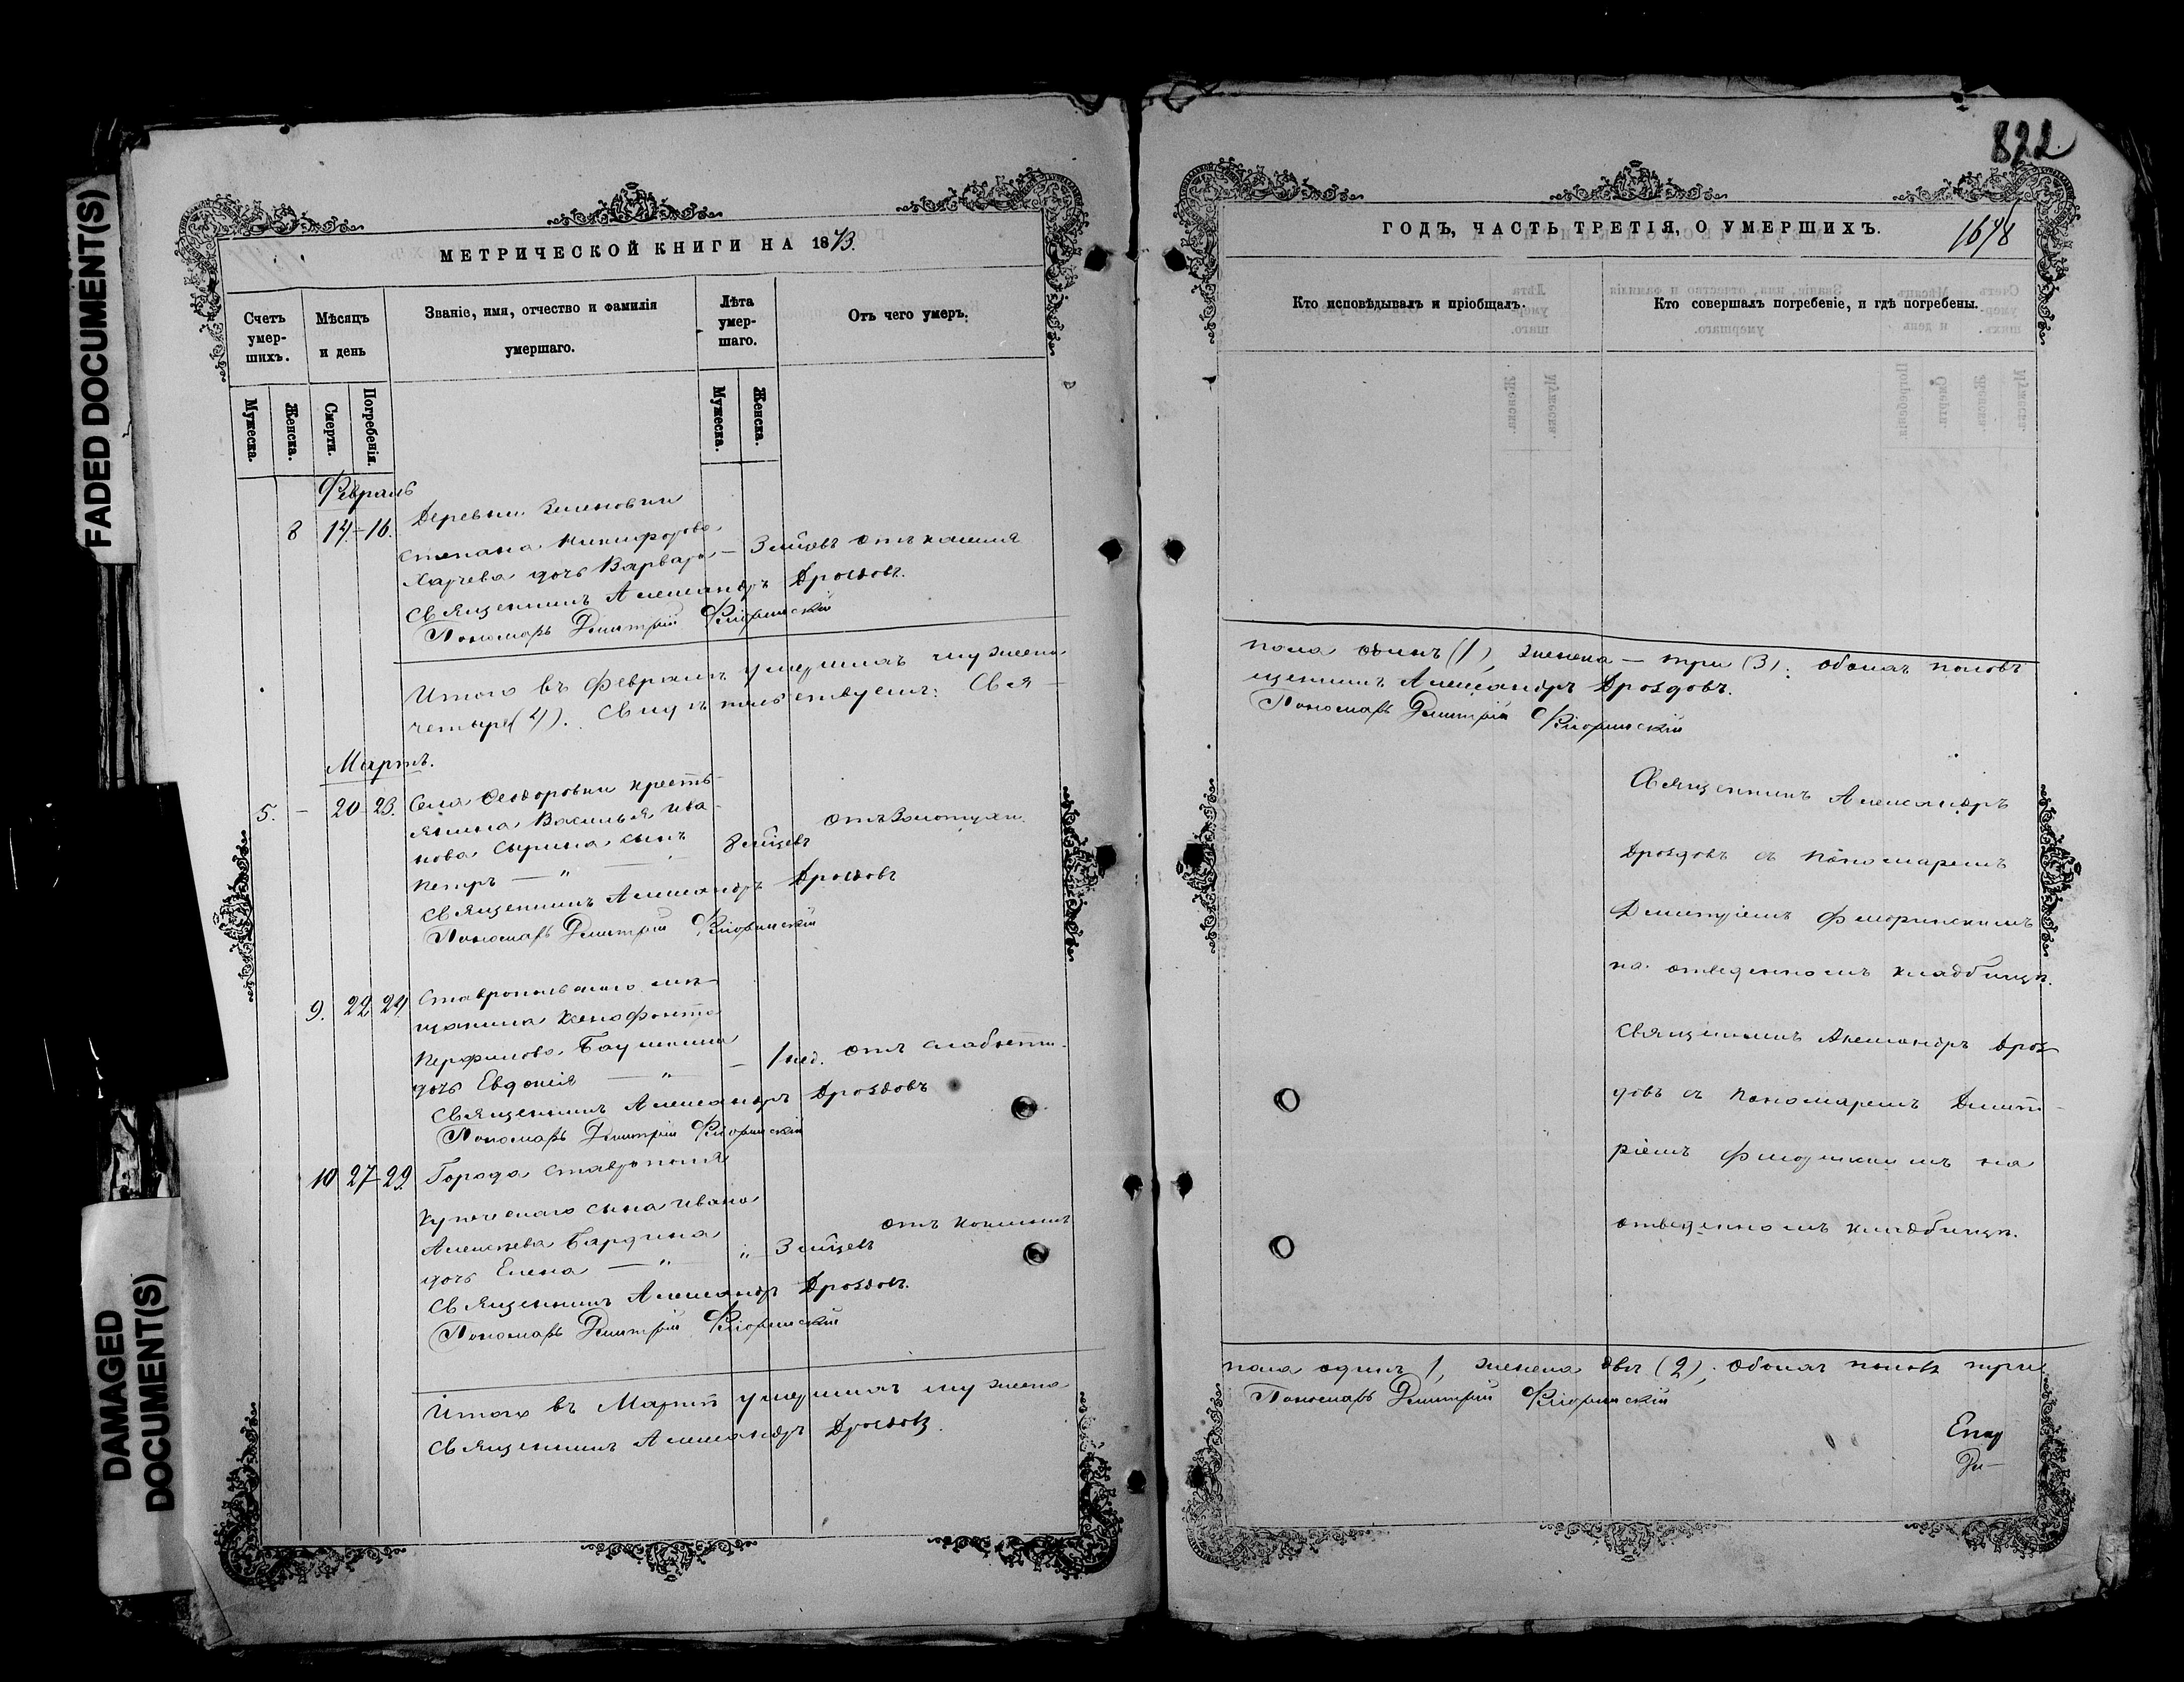 FADED DOCUMENT(S)
DAMAGED
DOCUMENT(S)
МЕТРИЧЕСКОЙ КНИГИ НА 1873.
Счетъ умер-шихъ.
Мѣсяцъ и день
Званіе, имя, отчество и фамилія умершаго.
Лѣта умер-шаго.
Отъ чего умеръ.
Мужеска.
Женска.
Смерти.
Погребенія.
Мужеска.
Женска.
Февраль
8 14-16. Деревни
Степана Никифорова
Харчева дочь Варвара — 3 мѣсѣцевъ отъ кашля
Священникъ Александръ Дроздовъ.
Пономарь Димитрій Флоринскій
Итого въ Февралѣ умершихъ мужеска
четыре (4). Свидѣтельствуемъ: Свя-
Мартъ.
5. – 20-23. Села Федоровки кресть-
янина Василья Ива-
нова Сырина сынъ
Петръ — " 8 мѣсцевъ отъ Золотухи.
Священникъ Александръ Дроздовъ
Пономарь Димитрій Флоринскій
9. 22 24 Ставропольскаго мѣ-
щанина Ксенофонта
Перфилова
дочь Евдокія — " — 1 нед. отъ слабости.
Священникъ Александръ Дроздовъ
Пономарь Димитрій Флоринскій
10 27-29. Города Ставрополя
Купеческаго сына Ивана
Алексѣева
дочь Елена — " " 3 мѣсцевъ отъ
Священникъ Александръ Дроздовъ.
Пономарь Димитрій Флоринскій
Итого въ Мартѣ умершихъ мужеска
Священникъ Александръ Дроздовъ.
822
ГОДЪ, ЧАСТЬ ТРЕТІЯ, О УМЕРШИХЪ.
Кто исповѣдывалъ и пріобщалъ.
Кто совершалъ погребеніе, и гдѣ погребены.
пола одинъ (1), женска — три (3). обоихъ половъ
щенникъ Александръ Дроздовъ.
Пономарь Димитрій Флоринскій
Священникъ Александръ
Дроздовъ съ пономаремъ
Димитріемъ Флоринскимъ
на отведенномъ кладбищѣ.
Священникъ Александръ Дроз-
довъ съ пономаремъ Димит-
ріемъ Флоринскимъ на
отведенномъ кладбищѣ.
пола одинъ 1, женска двѣ (2), обоихъ половъ три
Пономарь Димитрій Флоринскій